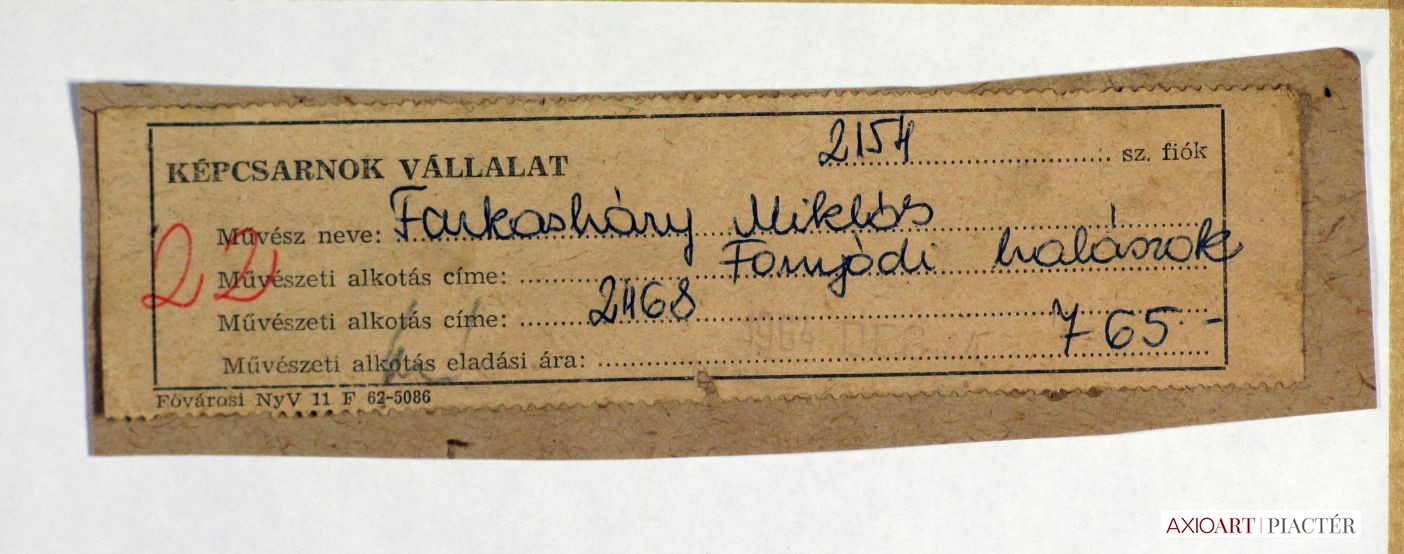 2154 sz. fiók
KÉPCSARNOK VÁLLALAT
Művész neve: Farkasháry Miklós
Művészeti alkotás címe: Fonyódi halászok
22
Művészeti alkotás címe: 2468
1964 DEC
765.-
Művészeti alkotás eladási ára:
Fővárosi NyV 11 F 62-5086
AXIOART | PIACTÉR